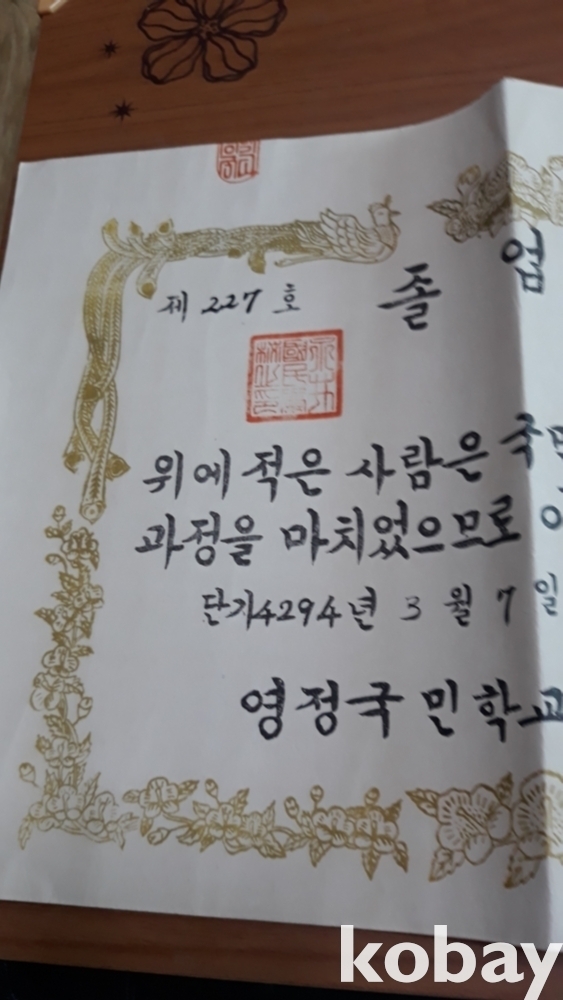 제 227 호
졸 업
위에 적은 사람은 국민
과정을 마치었으므로
단기 4294년 3 월 7 일
영정국민학교
kobay